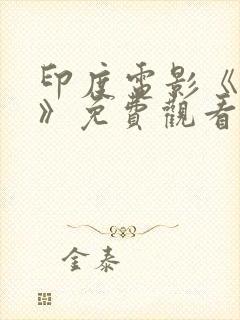 印度電影《
》免費觀看
金泰